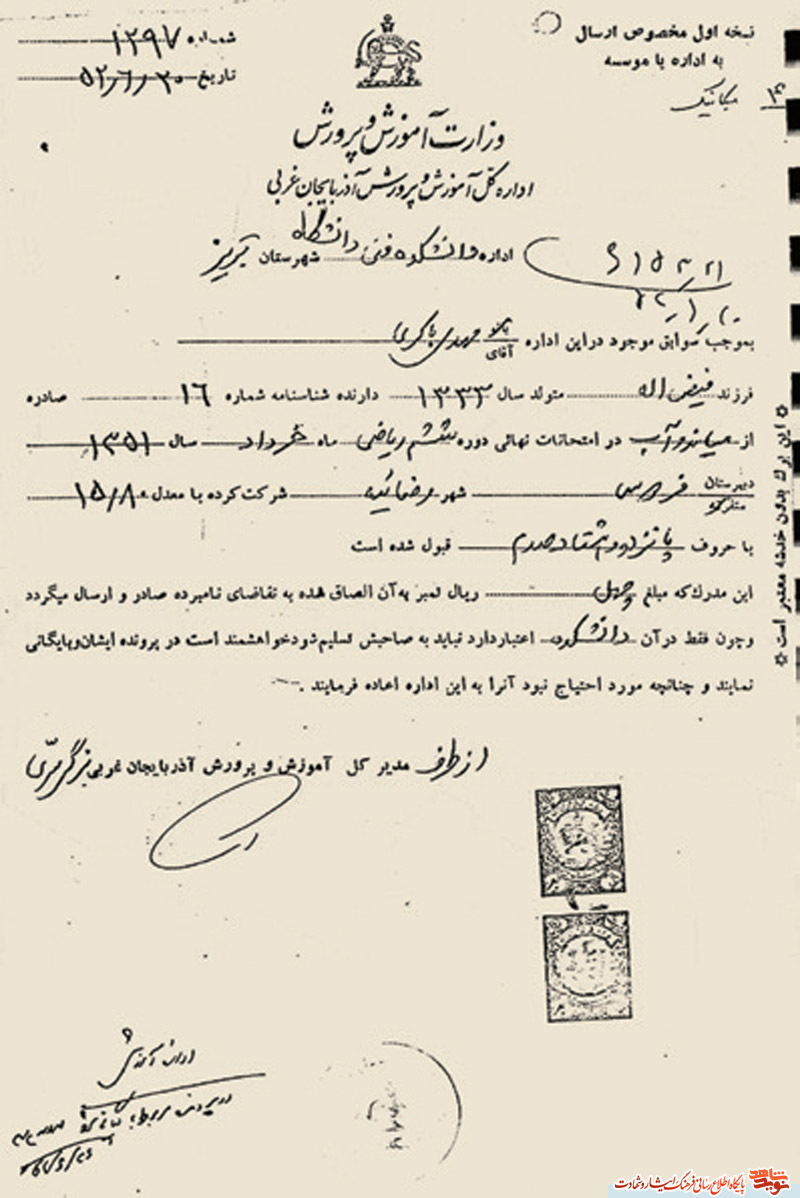 نسخه اول مخصوص ارسال
به اداره یا موسسه
۴ مکانیک
شماره ۱۲۹۷
تاریخ ۵۲/۶/۲۰
وزارت آموزش و پرورش
اداره کل آموزش و پرورش آذربایجان غربی
اداره دانشکده فنی دانشگاه شهرستان تبریز
بموجب سوابق موجود در این اداره بانو آقای مهدی باکری
فرزند فیض اله متولد سال ۱۳۳۳ دارنده شناسنامه شماره ۱۶ صادره
از میاندوآب در امتحانات نهائی دوره ششم ریاضی ماه خرداد سال ۱۳۵۱
دبیرستان فردوسی شهر رضائیه شرکت کرده با معدل ۱۵/۸۰
با حروف پانزده و هشتاد صدم قبول شده است
این مدرک که مبلغ چهل ریال تمبر به آن الصاق شده به تقاضای نامبرده صادر و ارسال میگردد
و چون فقط در آن دانشکده اعتبار دارد نباید به صاحبش تسلیم شود خواهشمند است در پرونده ایشان بایگانی
نمایند و چنانچه مورد احتیاج نبود آنرا به این اداره اعاده فرمایند .
از طرف مدیر کل آموزش و پرورش آذربایجان غربی
اداره آموزش
این برگ بدون خدشه معتبر است
نوید شاهد پایگاه اطلاع رسانی فرهنگ ایثار و شهادت